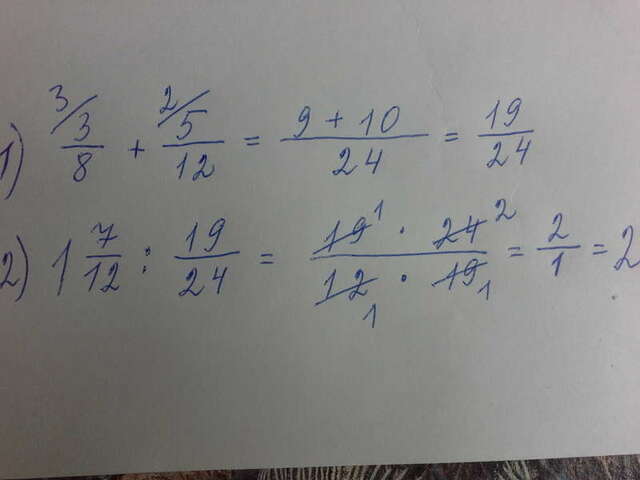 1) 3/ 3/8 + 2/ 5/12 = (9 + 10)/24 = 19/24
2) 1 7/12 : 19/24 = (19 1 · 24 2)/(12 1 · 19 1) = 2/1 = 2